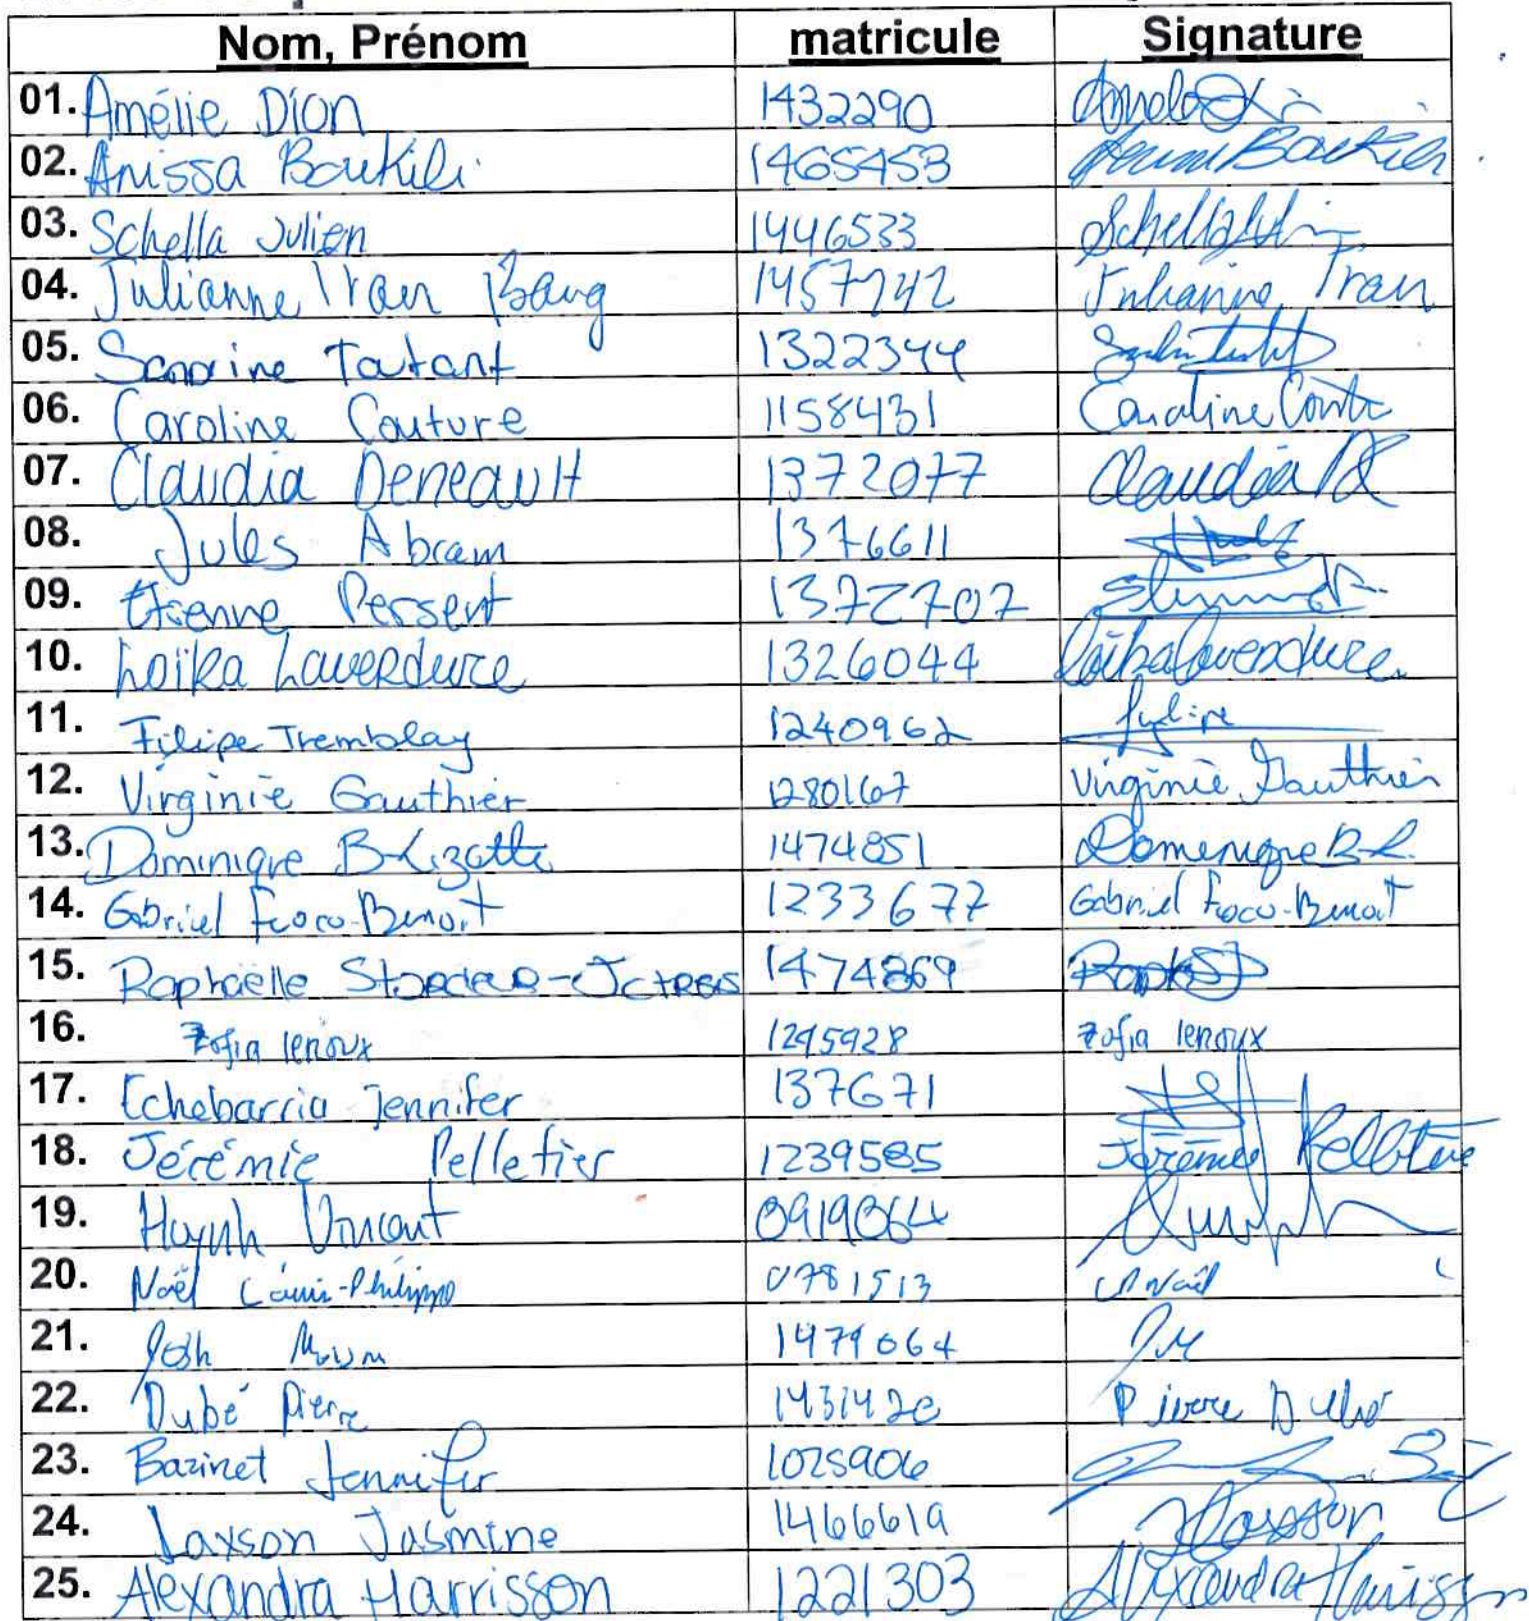 Nom, Prénom matricule Signature
01. Amélie Dion 1432290
02. Anissa Boukili 1465453 Boukili
03. Schella Julien 1446533 Schella
04. Julianne Tran Bang 1457242 Julianne Tran
05. Tatant 1322344
06. Caroline Couture 1158431 Caroline
07. Claudia Deneault 1372077 Claudia
08. Jules Abram 1376611
09. Etienne Persent 1372707
10. Loïka Laverdure 1326044 Loïka Laverdure
11. Filipe Tremblay 1240962
12. Virginie Gauthier 1280167 Virginie Gauthier
13. Dominique B-Lizotte 1474851 Dominique B-L.
14. Gabriel Foco-Benoit 1233677 Gabriel Foco-Benoit
15. Raphaëlle 1474869
16. Zofia lenoux 1295928 Zofia lenoux
17. Echebarria Jennifer 137671
18. Jérémie Pelletier 1239585 Jérémie Pelletier
19. Huynh Vincent
20. Noël Louis-Philippe 0781513 Noël
21. Josh 1479064 JM
22. Dubé Pierre Pierre Dubé
23. Bazinet Jennifer 1025906
24. Jaxson Jasmine 1466619 Jaxson
25. Alexandra Harrisson 1221303 Alexandra Harrisson